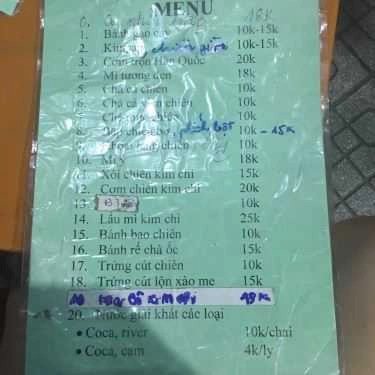 MENU
0. 18K
1. Bánh gạo cay 10k-15k
2. Kim chiên 10k-15k
3. Cơm trộn Hàn Quốc 20k
4. Mì tương đen 18k
5. Chả cá chiên 10k
6. Chả cá viên chiên 10k
7. chiên 10k
8. phô bột 10k - 15k
9. Khoai lang chiên 10k
10. Mì Ý 18k
11. Xôi chiên kim chi 15k
12. Cơm chiên kim chi 20k
13. 10k
14. Lẩu mì kim chi 25k
15. Bánh bao chiên 10k
16. Bánh rế chả ốc 15k
17. Trứng cút chiên 10k
18. Trứng cút lộn xào me 15k
19 18k
20. Nước giải khát các loại
• Coca, river 10k/chai
• Coca, cam 4k/ly